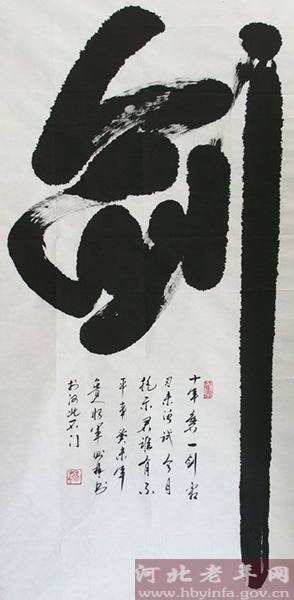 剑
十年磨一剑霜
刃未曾试今日
把示君谁有不
平事癸未年
於河北石门
河北老年网
www.hbyinfa.gov.cn